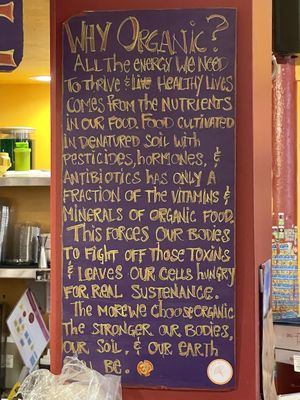 WHY ORGANIC?
ALL THE ENERGY WE NEED
TO THRIVE & LIVE HEALTHY LIVES
COMES FROM THE NUTRIENTS
IN OUR FOOD. FOOD CULTIVATED
IN DENATURED SOIL WITH
PESTICIDES, HORMONES, &
ANTIBIOTICS HAS ONLY A
FRACTION OF THE VITAMINS &
MINERALS OF ORGANIC FOOD.
THIS FORCES OUR BODIES
TO FIGHT OFF THOSE TOXINS
& LEAVES OUR CELLS HUNGRY
FOR REAL SUSTENANCE.
THE MORE WE CHOOSE ORGANIC
THE STRONGER OUR BODIES,
OUR SOIL, & OUR EARTH
BE.